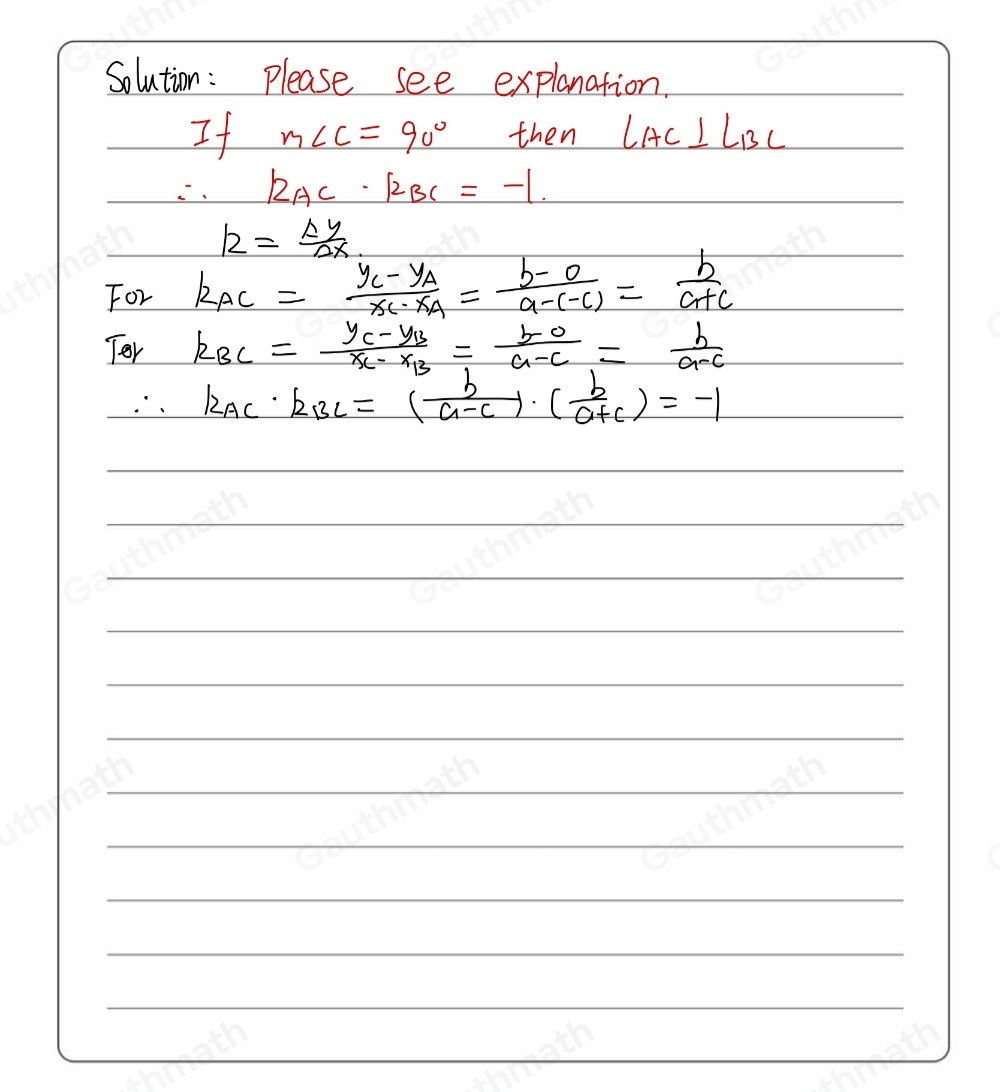 Solution: Please see explanation.
If m∠C = 90° then LAC ⊥ LBC
∴ kAC · kBC = -1.
k = Δy/Δx.
For kAC = (yC - yA)/(xC - xA) = (b - 0)/(a - (-c)) = b/(a+c)
For kBC = (yC - yB)/(xC - xB) = (b - 0)/(a - c) = b/(a-c)
∴ kAC · kBC = (b/(a-c)) · (b/(a+c)) = -1
Gauthmath